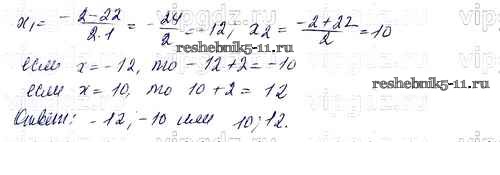 x₁ = -2-22/2·1 = -24/2 = -12; x₂ = -2+22/2 = 10
reshebnik5-11.ru
если x = -12, то -12+2 = -10
если x = 10, то 10+2 = 12
reshebnik5-11.ru
Ответ: -12; -10 или 10; 12.